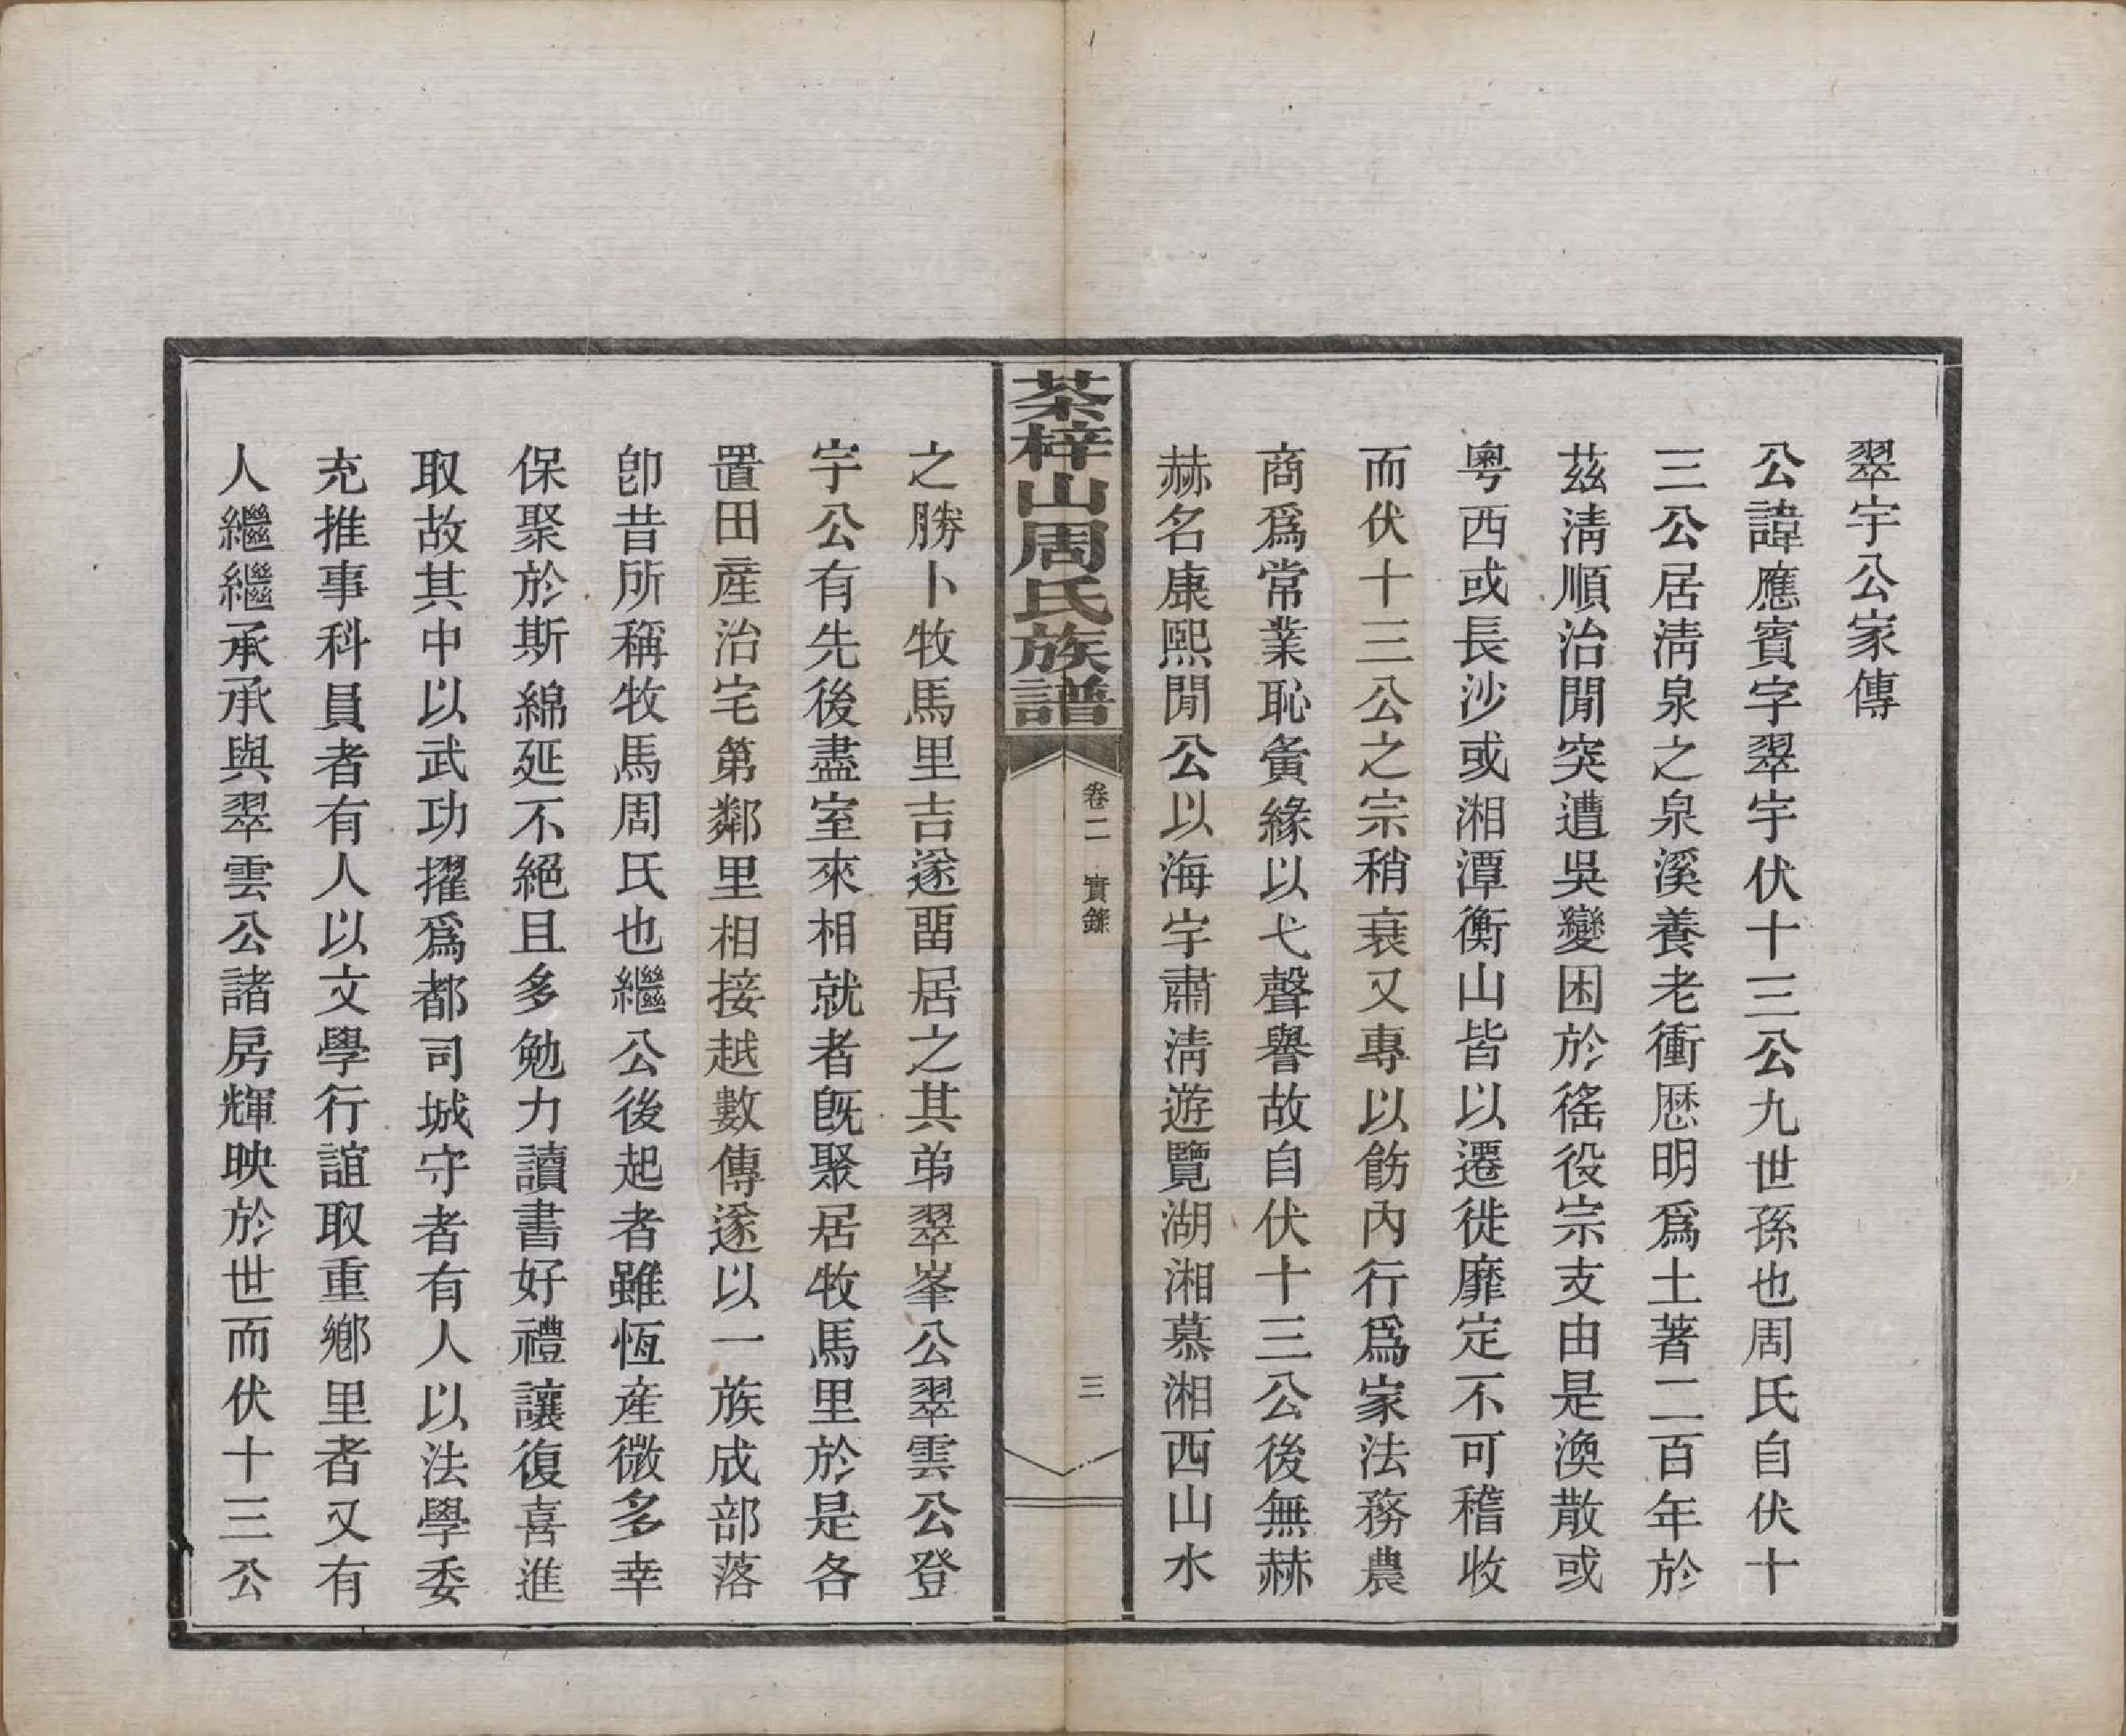 翠宇公家傳
公諱應賓字翠宇伏十三公九世孫也周氏自伏十
三公居淸泉之泉溪養老衝歷明爲土著二百年於
茲淸順治閒突遭吳變困於徭役宗支由是渙散或
粤西或長沙或湘潭衡山皆以遷徙靡定不可稽收
而伏十三公之宗稍衰又專以飭內行爲家法務農
商爲常業恥夤緣以弋聲譽故自伏十三公後無赫
赫名康熙閒公以海宇肅淸遊覽湖湘慕湘西山水
茶梓山周氏族譜
卷二 實錄
三
之勝卜牧馬里吉遂畱居之其弟翠峯公翠雲公登
宇公有先後盡室來相就者旣聚居牧馬里於是各
置田產治宅第鄰里相接越數傳遂以一族成部落
卽昔所稱牧馬周氏也繼公後起者雖恆產微多幸
保聚於斯綿延不絕且多勉力讀書好禮讓復喜進
取故其中以武功擢爲都司城守者有人以法學委
充推事科員者有人以文學行誼取重鄉里者又有
人繼繼承承與翠雲公諸房輝映於世而伏十三公